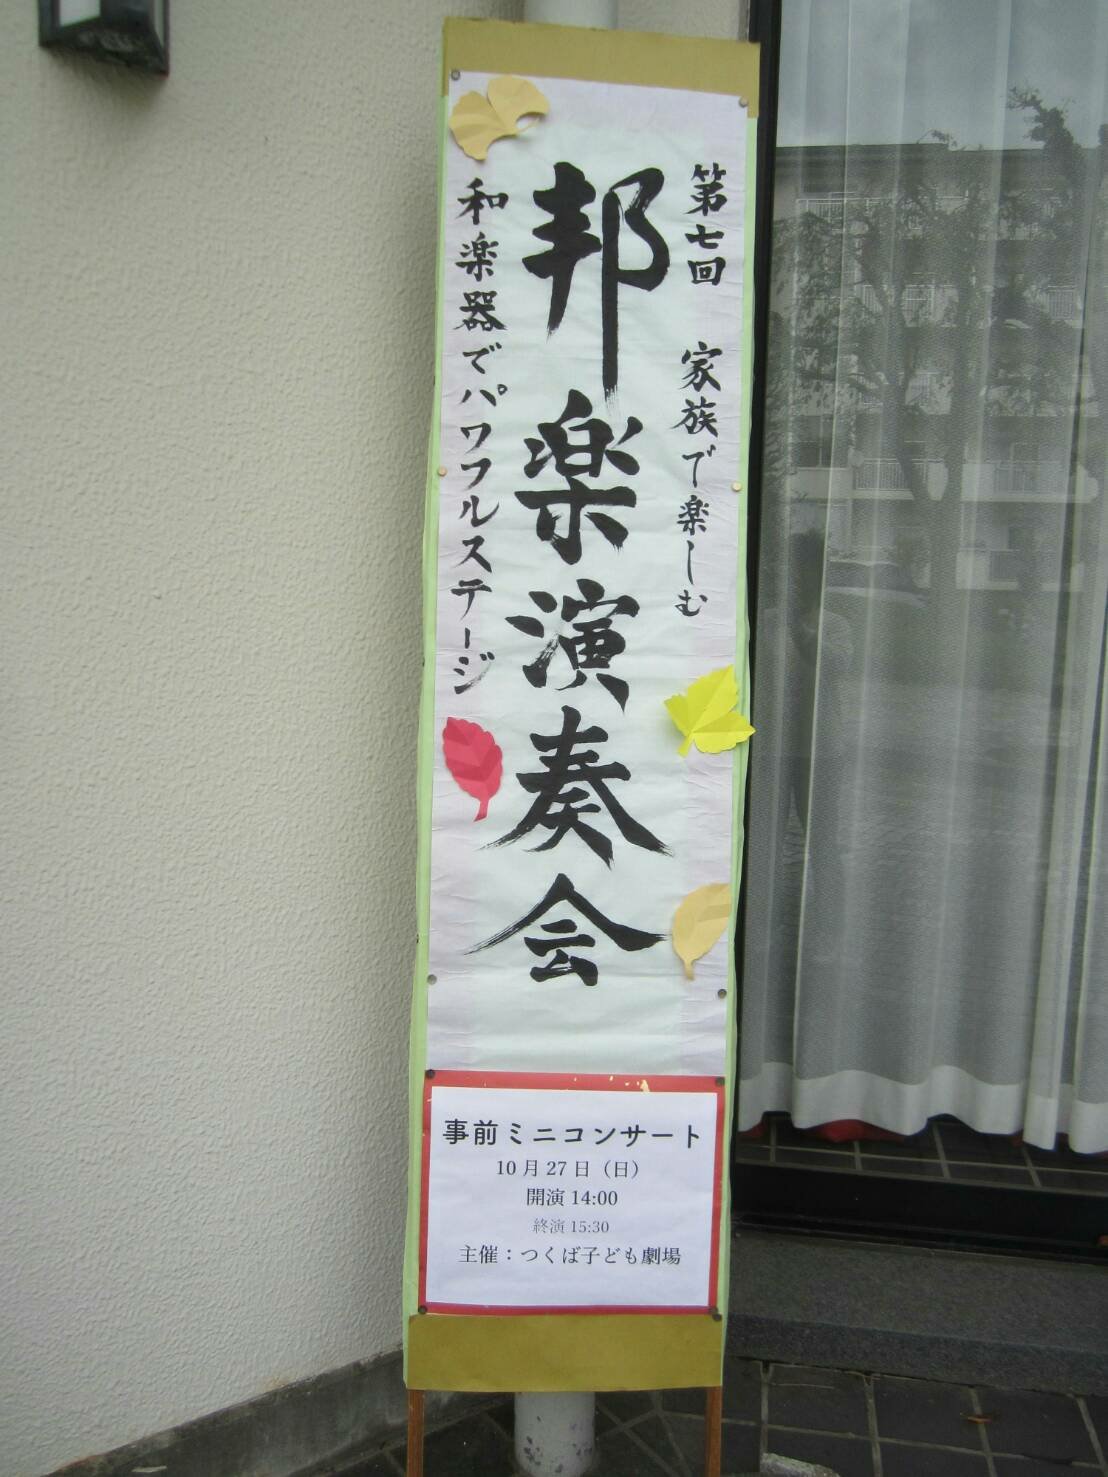 第七回 家族で楽しむ
邦楽演奏会
和楽器でパワフルステージ
事前ミニコンサート
10月27日（日）
開演14:00
終演15:30
主催：つくば子ども劇場